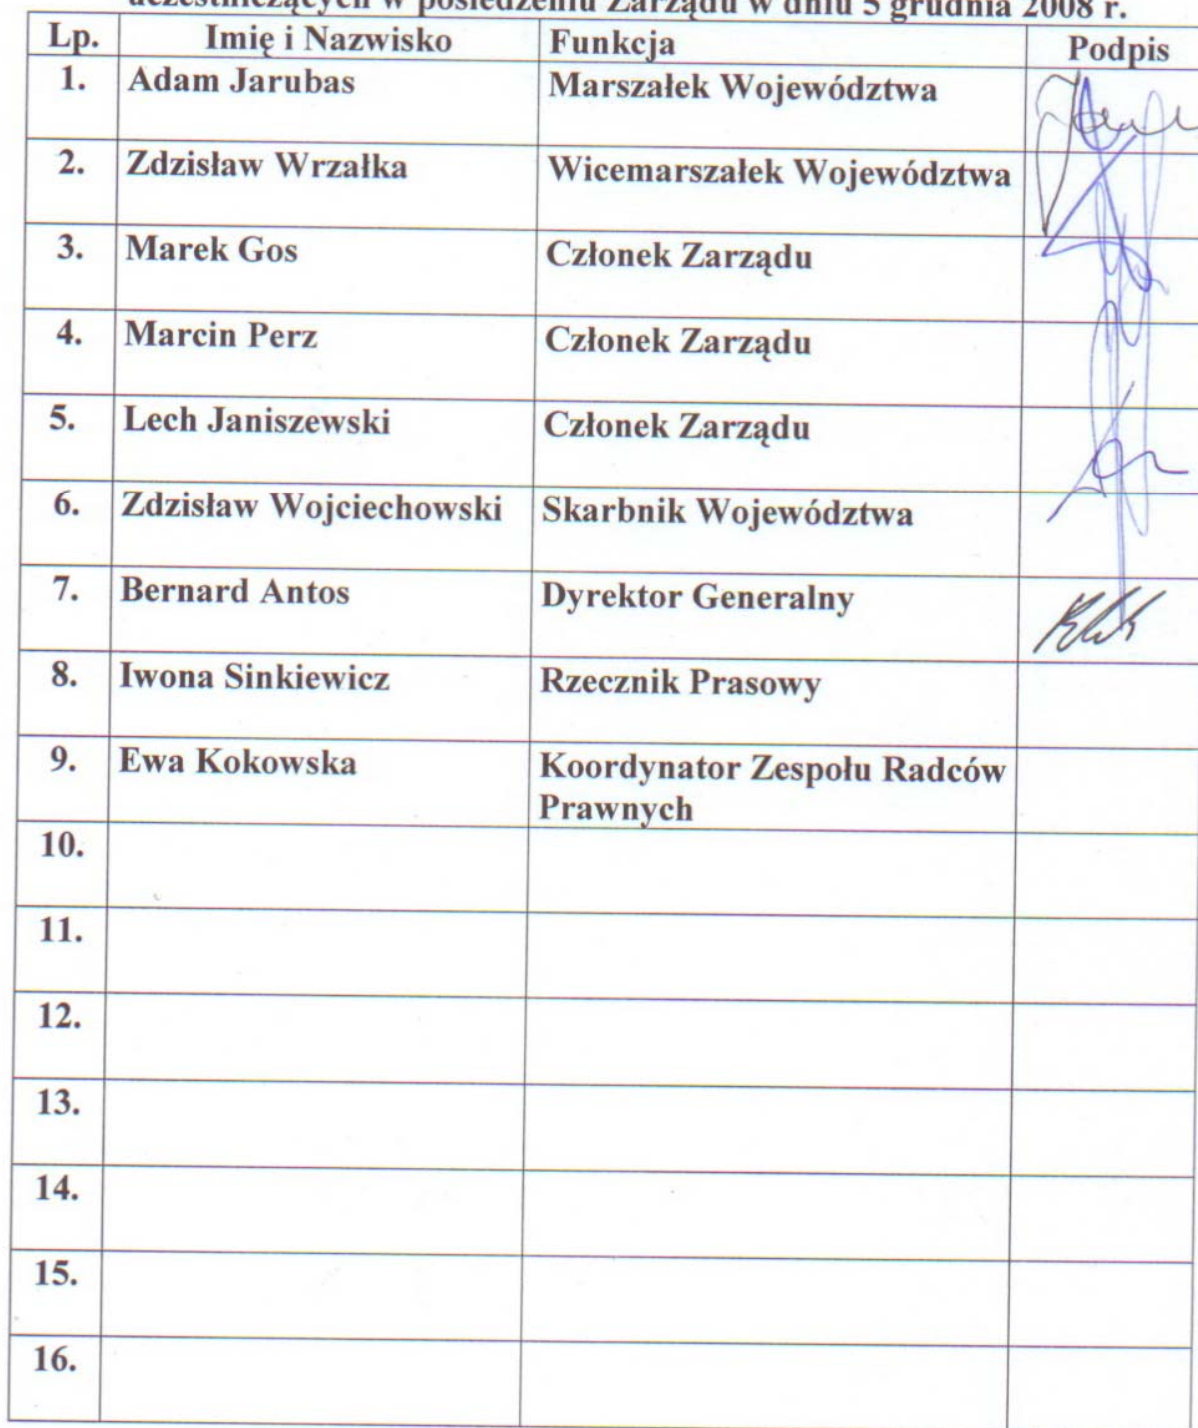 uczestniczących w posiedzeniu Zarządu w dniu 5 grudnia 2008 r.
Lp. Imię i Nazwisko Funkcja Podpis
1. Adam Jarubas Marszałek Województwa
2. Zdzisław Wrzałka Wicemarszałek Województwa
3. Marek Gos Członek Zarządu
4. Marcin Perz Członek Zarządu
5. Lech Janiszewski Członek Zarządu
6. Zdzisław Wojciechowski Skarbnik Województwa
7. Bernard Antos Dyrektor Generalny
8. Iwona Sinkiewicz Rzecznik Prasowy
9. Ewa Kokowska Koordynator Zespołu Radców
Prawnych
10.
11.
12.
13.
14.
15.
16.